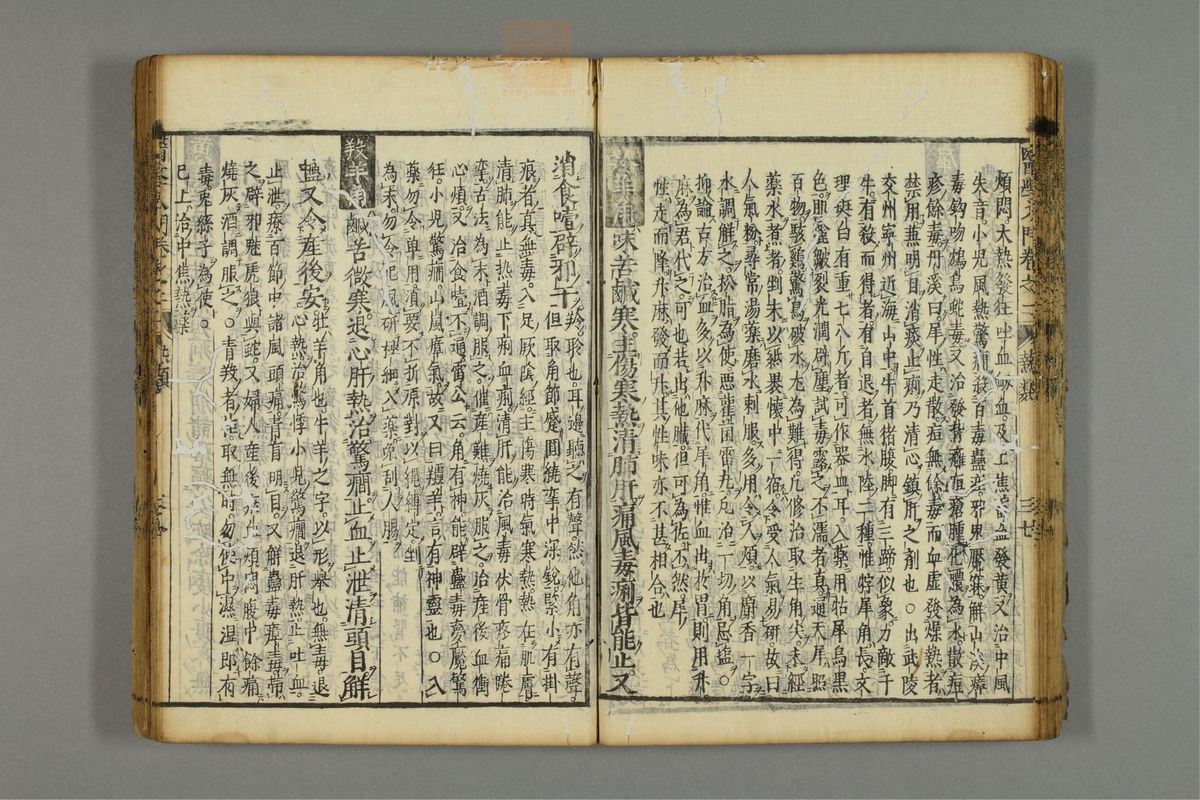 煩悶大熱發狂吐血衂血及上焦蓄血發黃又治中風
失音小兒風熱驚癎殺百毒蠱疰邪鬼魘寐解山嵐瘴
毒鈎吻鴆鳥蛇毒又治發背癰疽瘡腫化膿為水散痘
疹餘毒丹溪曰犀性走散痘無餘毒而血虛發燥熱者
禁用蕪明目消痰止痢乃清心鎮肝之劑也○出武陵
交州寧州近海山中牛首猪腹脚有三蹄似象力敵千
牛有殺而得者有自退者無水陸二種惟牸犀角長文
理奕白有重七八斤者可作器皿耳入藥用牯犀烏黑
色肌皺裂光潤辟塵試毒露之不濡者真通天犀照
百物駭鷄驚鳥破水尤為難得凡修治取生角尖未經
藥水煮者剉末以紙裹懷中一宿令受人氣易研故曰
人氣粉尋常湯藥磨水刺服多用令人煩以麝香一字
水調解之松脂為使惡雚菌雷丸凡治一切角忌塩○
抑論古方治血多以升麻代犀角惟血出於胃則用升
麻為君代之可也若出他臟但可為佐不然犀
性走而降升麻發而升其性味亦不甚相合也
羚羊角味苦鹹寒主傷寒熱清肺肝痛風毒痢皆能止又
消食噎辟邪于羚聆也耳邊聽之有聲然他角亦有聲
但取角節蹙圓繞率中深銳緊小有掛
痕者真無毒入足厥陰經主傷寒時氣寒熱熱在肌膚
清肺能止熱毒下痢血痢清肝能治風毒伏骨疼痛踡
攣古法為末酒調服之催產難燒灰服之治產後血衝
心煩又治食噎不通雷公云角有神能辟蠱毒夢魘驚
狂小兒驚癎山嵐瘴氣故又曰羚羊言有神靈也○入
藥勿令單用須要不拆原對以繩縛定剉
為末勿令犯風研極細入藥免刮人腸
羖羊角鹹苦微寒退心肝熱治驚癎止血止泄清頭目解
蠱又令產後安牡羊角也牛羊之字以形舉也無毒退
心熱治驚悸小兒驚癎退肝熱止吐血
止泄療百節中諸風頭痛青盲明目又解蠱毒瘴毒帶
之辟邪魅虎狼與蛇又婦人產後寒中煩滿腹中餘痛
燒灰酒調服之○青羖者為取無時勿使中濕濕即有
毒兔絲子為使
已上治中焦熱藥